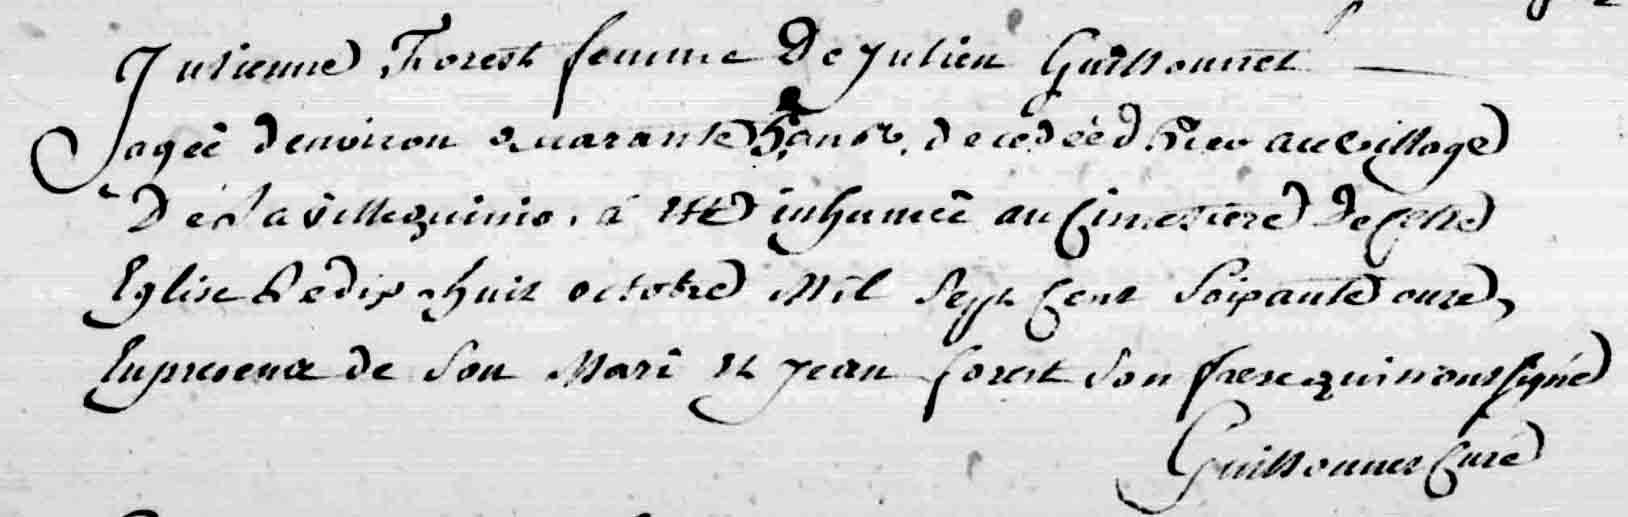 Julienne Forest femme De Julien Guillonnet
agée denviron quarante ans, decedèé hier au village
De la villequinio, á été inhumeê au Cimetiere De Cette
Eglise Le dix huit octobre Mil Sept Cent Soixante onze,
En presence de Son Mari et Jean forest Son frere qui n'ont signé
Guillonnet Curé